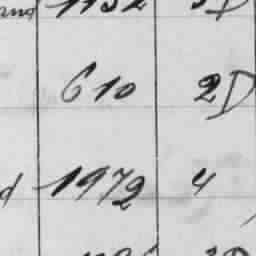 and 1132 3D
610 2D
d 1972 4